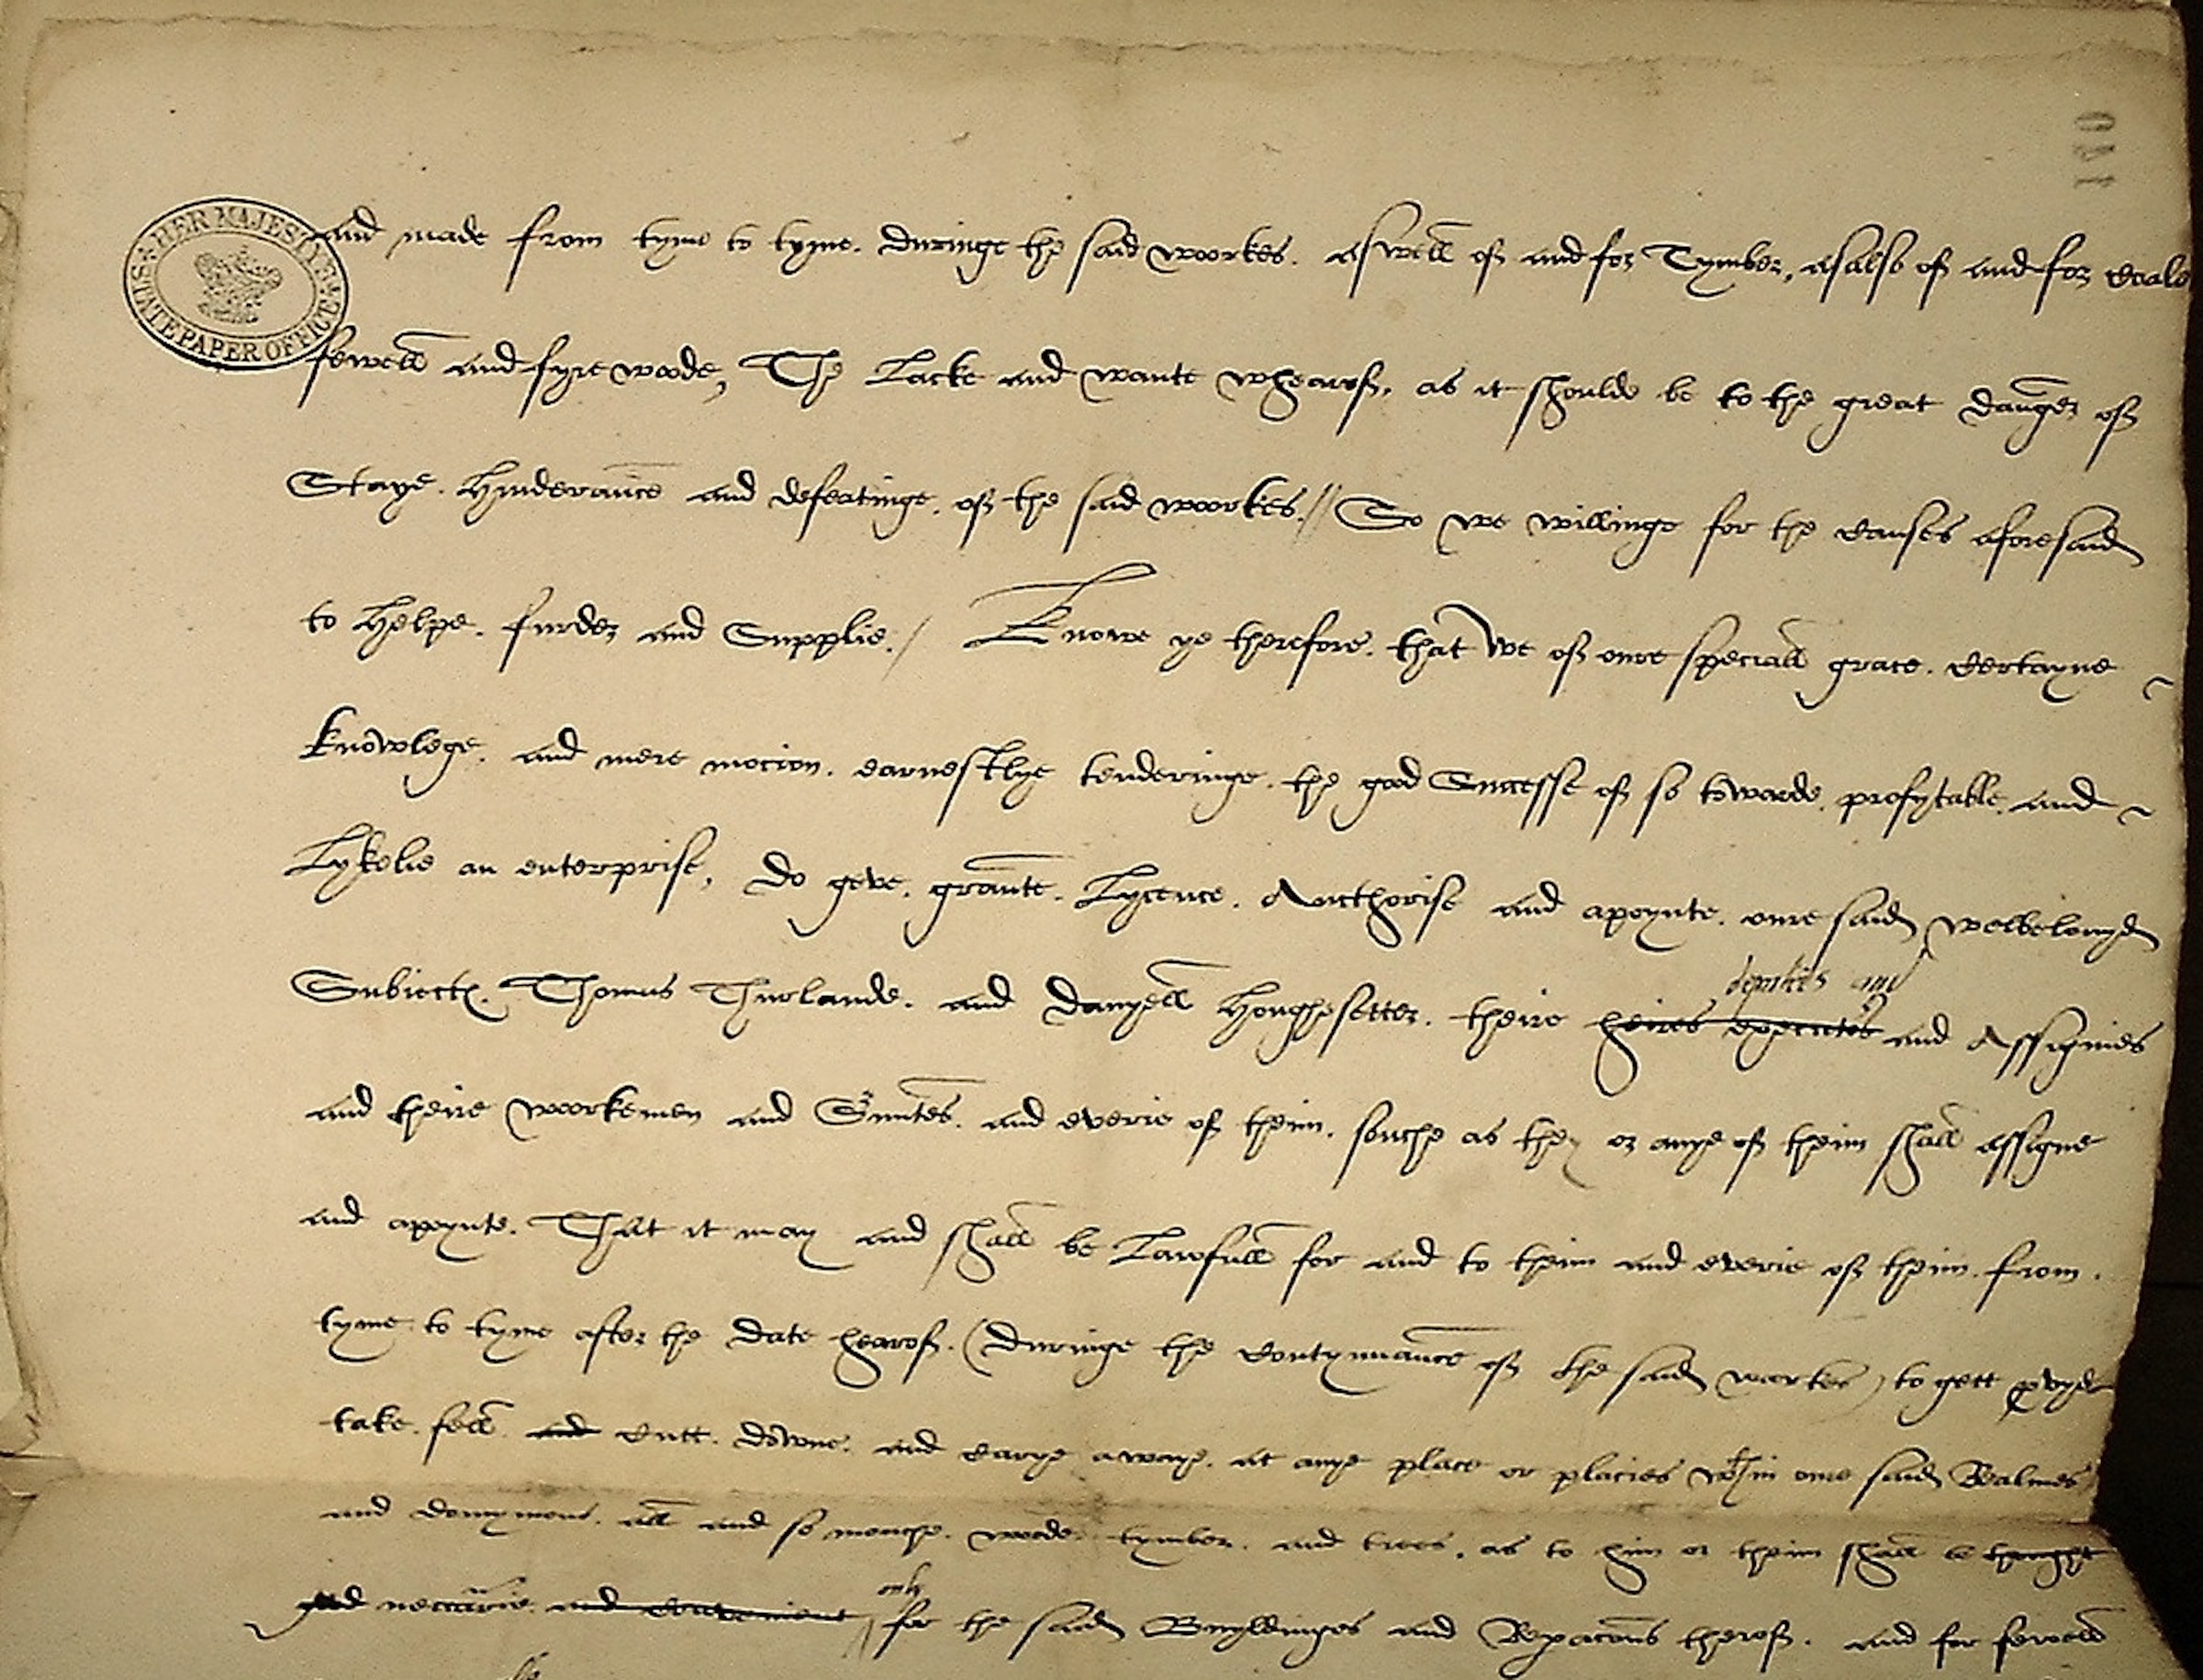 140
HER MAJESTY'S STATE PAPER OFFICE
and made from tyme to tyme. duringe the said woorkes. aswell of and for Tymber, asalso of and for Coale
fewell and fyre woode, The Lacke and wante whearof, as it shoulde be to the great daunger of
Staye. Hinderaunce and defeatinge. of the said woorkes.// So we willinge for the causes aforesaid
to Helpe. furder and Supplie./ Knowe ye therefore. that We of oure speciall grace. certayne
knowlege. and mere mocion. earnestlye tenderinge. the good Successe of so towarde. profytable. and
Lykelie an enterprise, do geve. graunte. Lycence. Aucthorise and apoynte. oure said welbelovyd
Subiectes. Thomas Thurlande. and Danyell Houghesetter. theire heires executors and Assignies
deputies and
and theire woorkemen and Servuntes. and everie of theim. souche as they or anye of theim shall assigne
and apoynte. That it may and shall be Lawfull for and to theim and everie of theim. from.
tyme to tyme after the date hearof. (duringe the contynuaunce of the said workes) to gett pvyde
take. fell. and cutt. downe. and carye awaye. at anye place or placies wthin oure said Realmes
and domynions. all and so mouche. woode. tymber. and trees. as to him or theim shall be thought
good necessarie and convenient // for the said Buyldinges and Reparacions therof. and for fewell
only